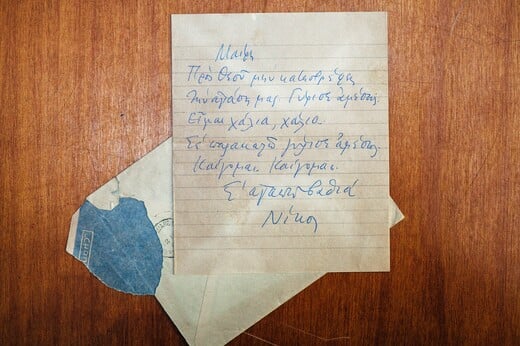 Μαίρη
Πρὸς Θεοῦ μην καταστρέφεις
την αγάπη μας. Γύρισε ἀμέσως.
Εἶμαι χάλια, χάλια.
Σὲ παρακαλῶ γύρισε ἀμέσως.
Καίγομαι. Καίγομαι.
Σ' αγαπώ βαθιά
Νίκος